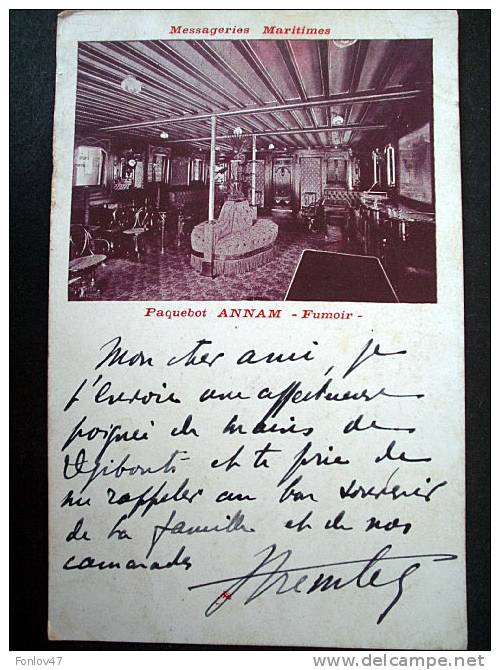 Messageries Maritimes
Paquebot ANNAM - Fumoir -
Mon cher ami, je
t'envoie une affectueuse
poignée de mains de
Djibouti et te prie de
me rappeler au bon souvenir
de la famille et de nos
camarades
Fonlov47
www.delcampe.net